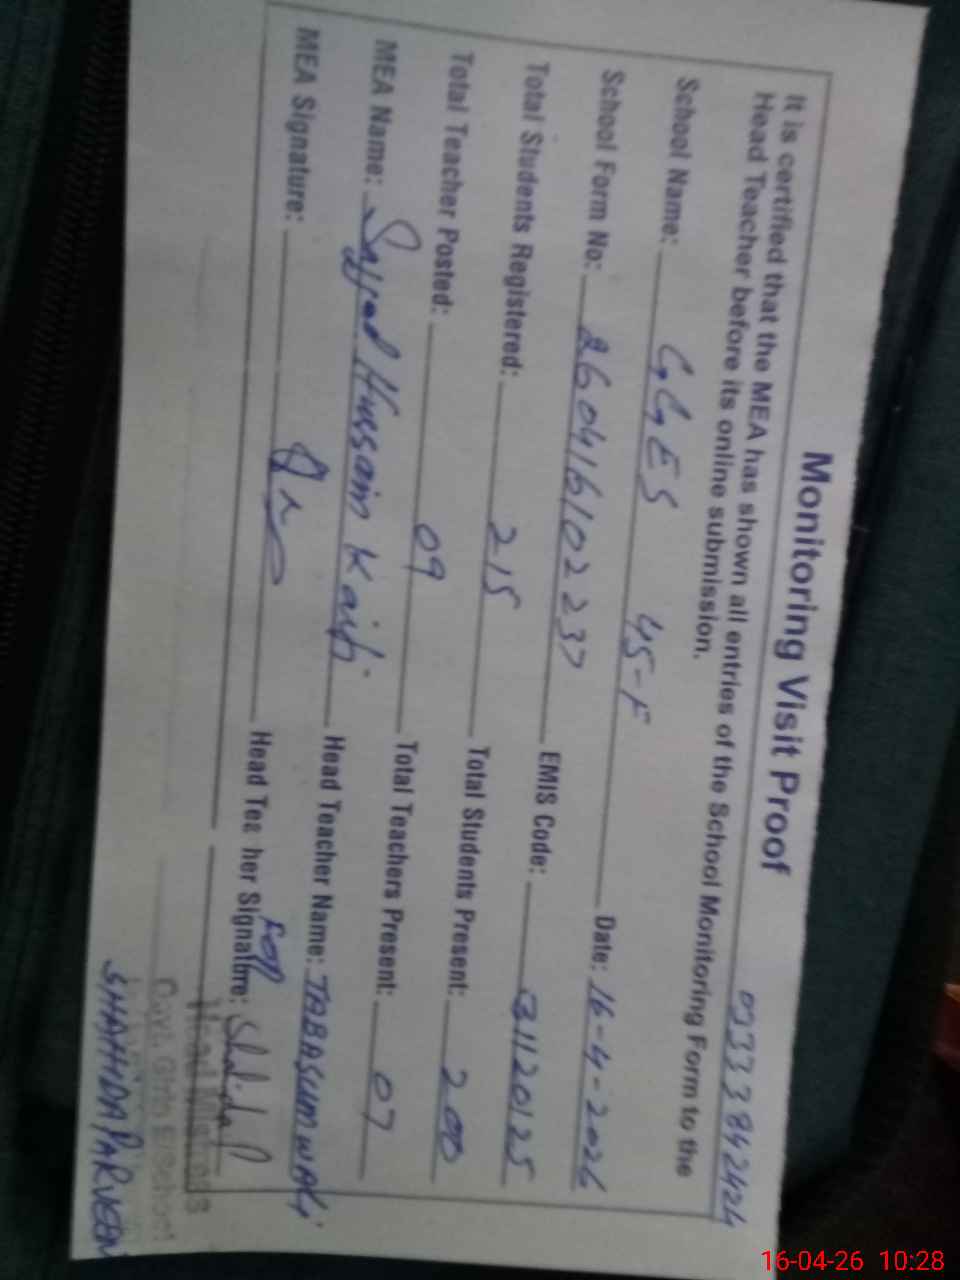 Monitoring Visit Proof
0333842424
It is certified that the MEA has shown all entries of the School Monitoring Form to the
Head Teacher before its online submission.
School Name: GGES 45-F Date: 16-4-2026
School Form No: 260416102237 EMIS Code: 31120125
Total Students Registered: 215 Total Students Present: 200
Total Teacher Posted: 09 Total Teachers Present: 07
MEA Name: Sajjad Hussain Kaifi Head Teacher Name: TABASUM WALI
MEA Signature: Head Teacher Signature: For Shahida P
Head Mistress
Govt. Girls E/School
SHAHIDA PARVEEN
16-04-26 10:28